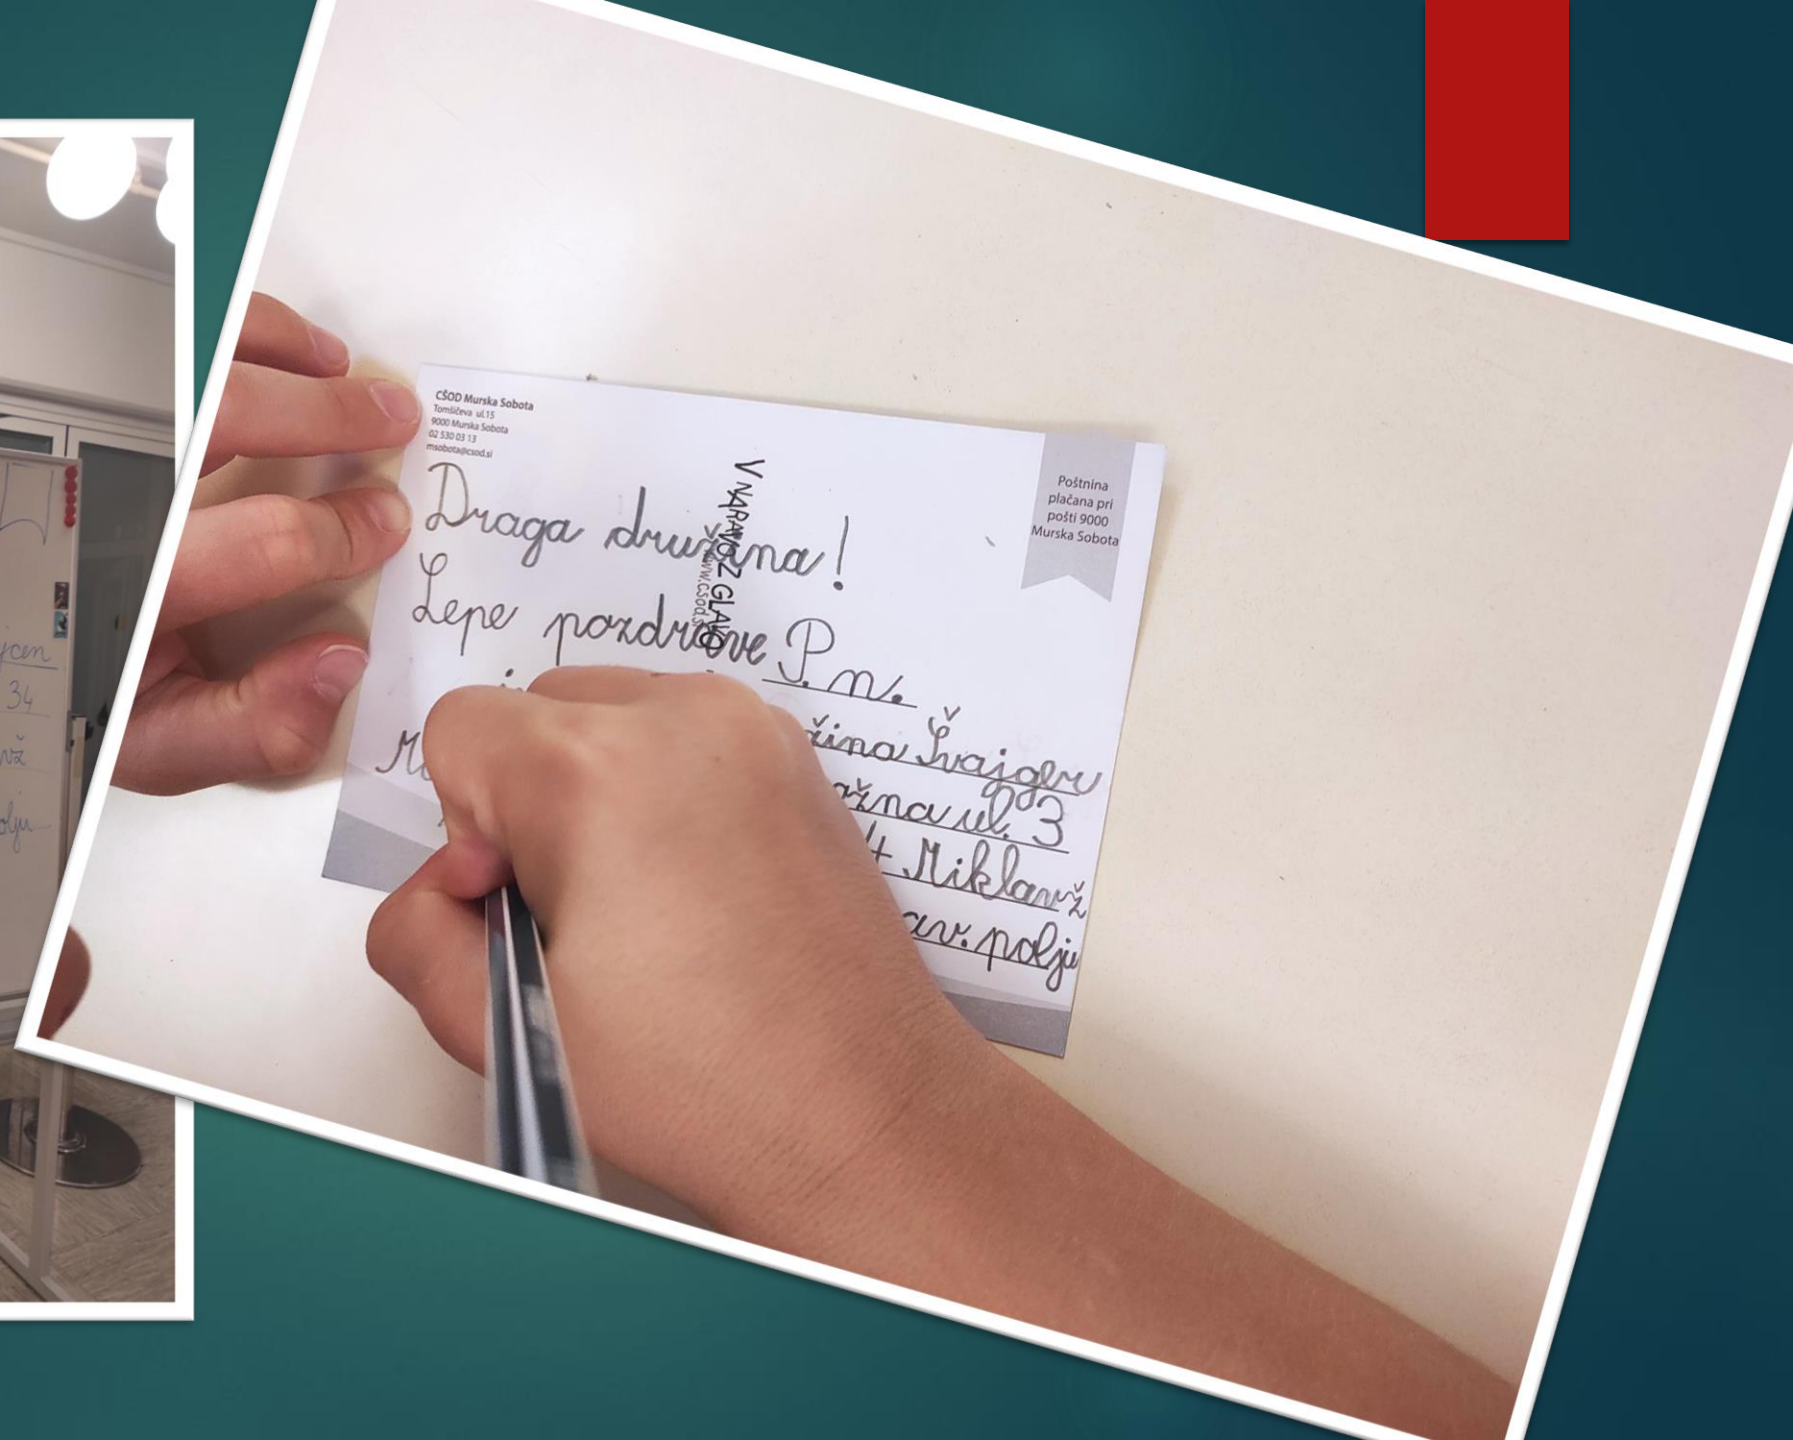 CŠOD Murska Sobota
Tomšičeva ul.15
9000 Murska Sobota
02 530 03 13
msobota@csod.si
Poštnina
plačana pri
pošti 9000
Murska Sobota
V NARAVO Z GLAVO
www.csod.si
Draga družina!
Lepe pozdrave
P. n.
žina Švajger
ažna ul. 3
4 Miklavž
av. polju
34
vž
olju